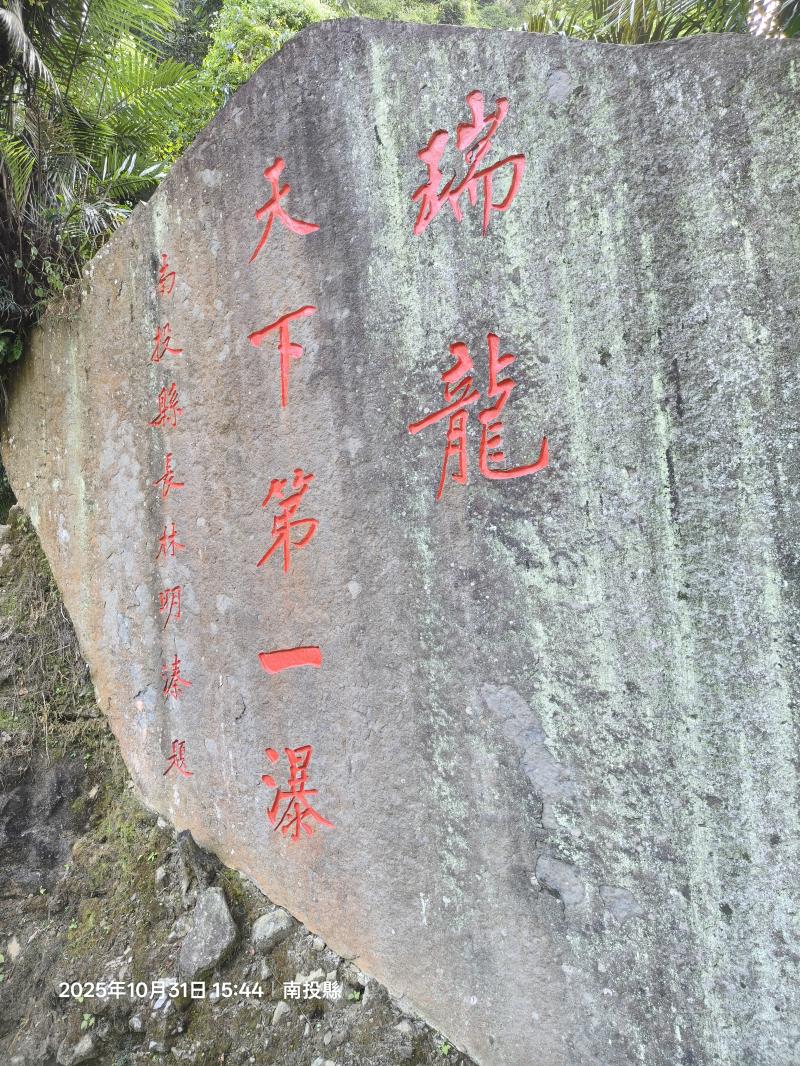 瑞龍
天下第一瀑
南投縣長林明溱題
2025年10月31日 15:44 | 南投縣